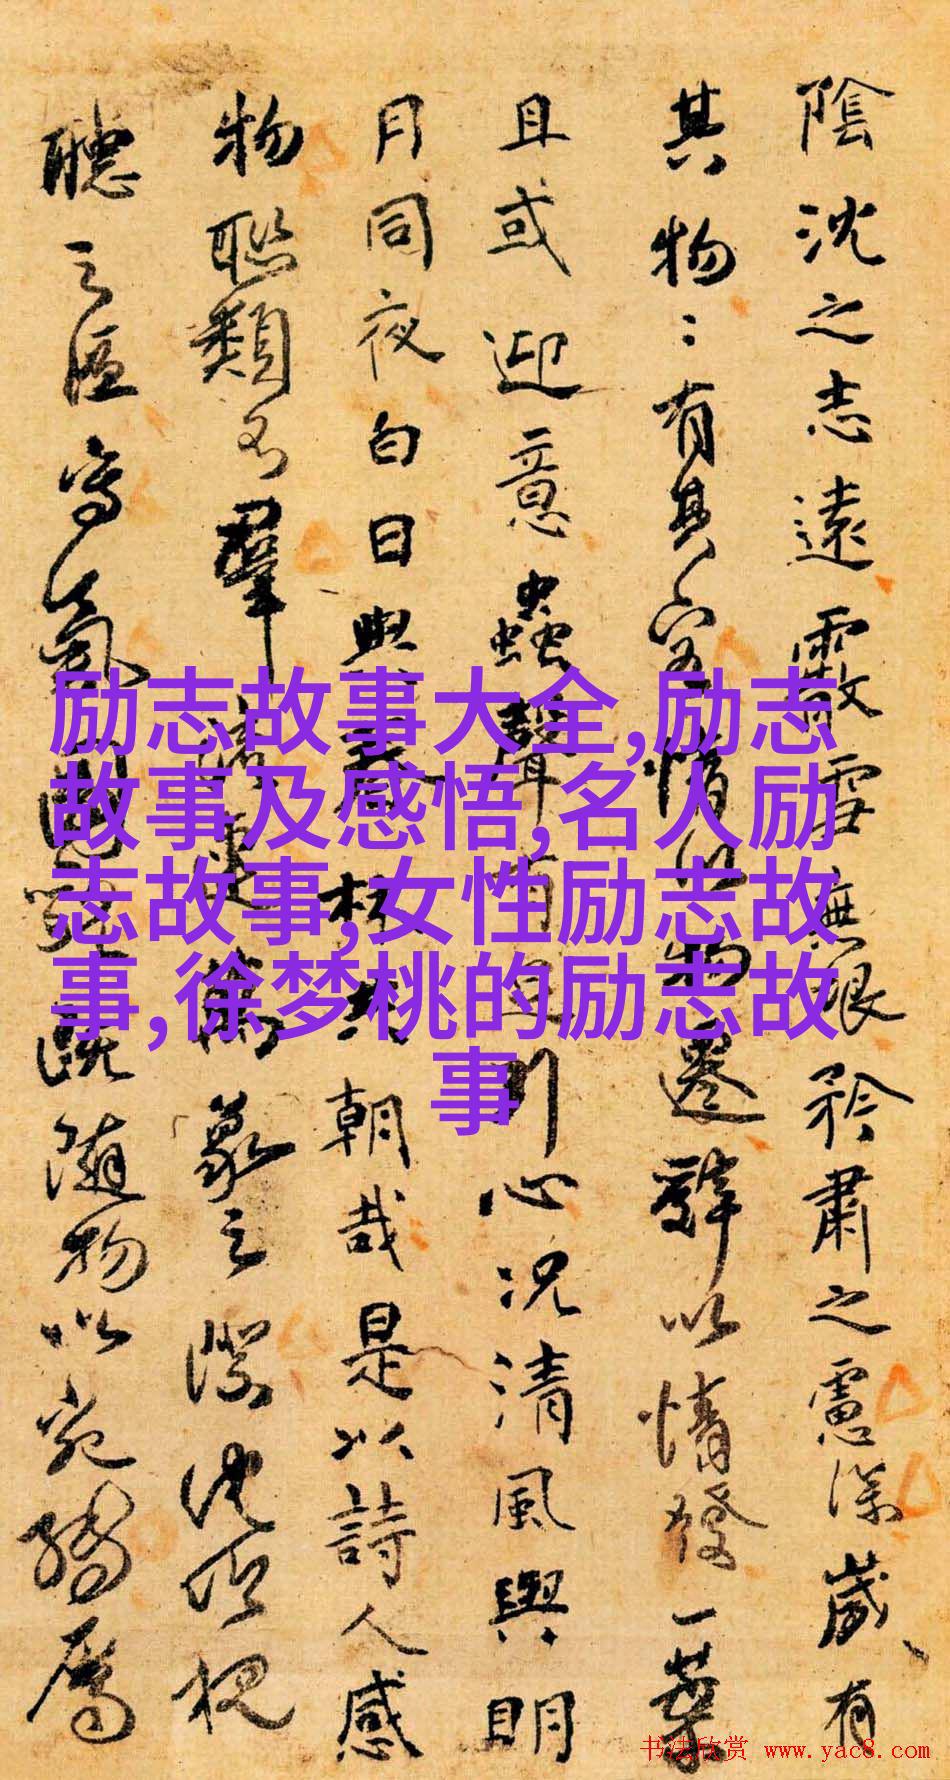 陰沈之志遠霰雪無垠矜肅之慮深歲有
其物〻有其容情以物遷辭以情發一葉
且或迎意蟲聲有足引心況清風與明
月同夜白日與春林共朝哉是以詩人感
物聯類流連萬象之際沈吟視
聽之區寫氣圖貌既隨物以宛轉屬
励志故事大全,励志
故事及感悟,名人励
志故事,女性励志故
事,徐梦桃的励志故
事
书法欣赏 www.yac8.com